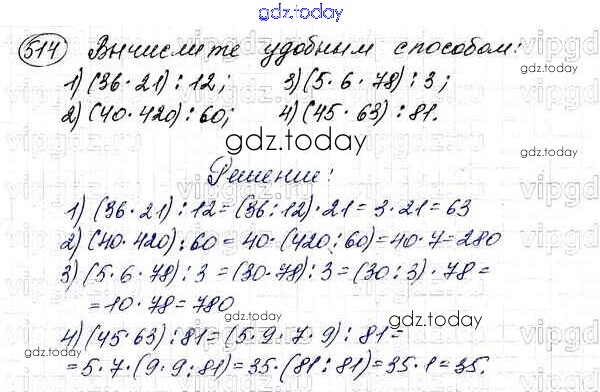 gdz.today
514 Вычислите удобным способом:
1) (36·21):12; 3) (5·6·78):3;
2) (40·420):60; 4) (45·63):81.
gdz.today
Решение:
1) (36·21):12=(36:12)·21=3·21=63
2) (40·420):60=40·(420:60)=40·7=280
3) (5·6·78):3=(30·78):3=(30:3)·78=
=10·78=780
gdz.today
4) (45·63):81=(5·9·7·9):81=
gdz.today
=5·7·(9·9:81)=35·(81:81)=35·1=35.
gdz.today